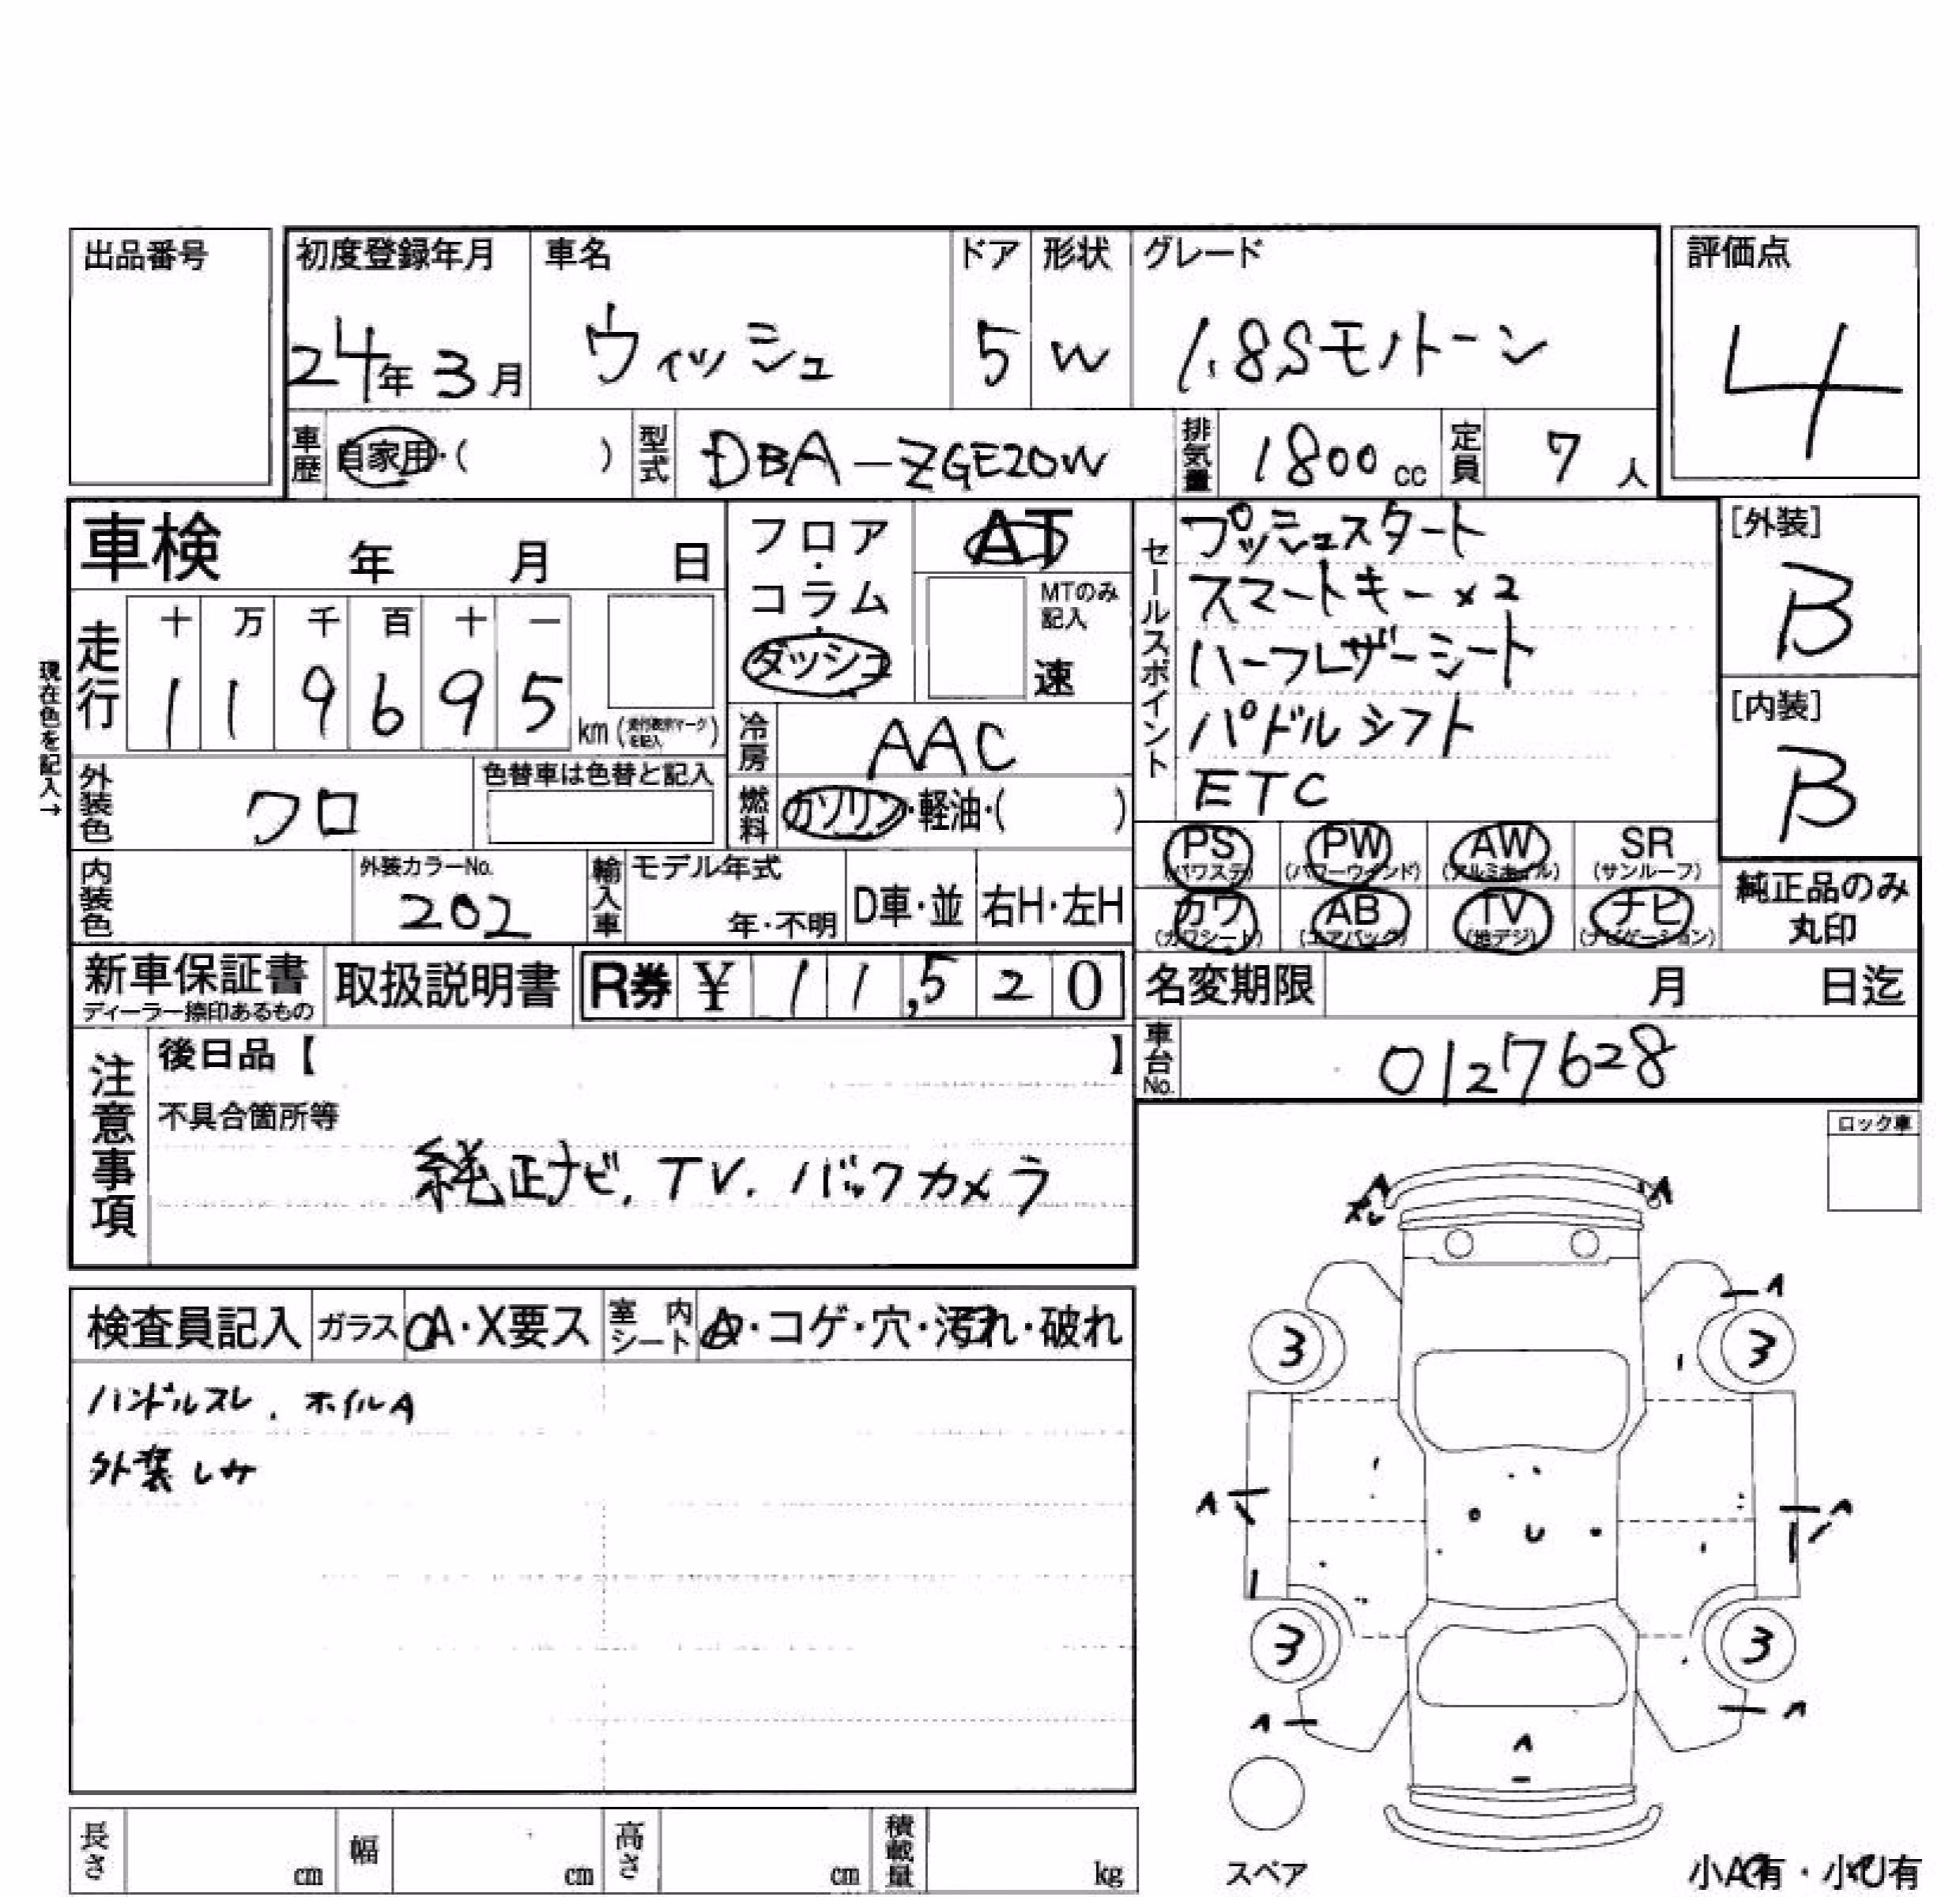 出品番号
初度登録年月 車名 ドア 形状 グレード 評価点
24年 3月 ウィッシュ 5 W 1.8Sモノトーン 4
車歴 自家用・( ) 型式 DBA-ZGE20W 排気量 1800cc 定員 7人
車検 年 月 日
フロア・コラム・ダッシュ
AT
MTのみ記入
速
セールスポイント
プッシュスタート
スマートキー×2
ハーフレザーシート
パドルシフト
ETC
[外装]
B
[内装]
B
現在色を記入→
走行 十 万 千 百 十 一
1 1 9 6 9 5 km
冷房 AAC
外装色 クロ 色替車は色替と記入
燃料 ガソリン・軽油・( )
PS (パワステ) PW (パワーウィンド) AW (アルミホイル) SR (サンルーフ)
カワ (カワシート) AB (エアバック) TV (地デジ) ナビ (ナビゲーション)
純正品のみ
丸印
内装色 外装カラーNo. 202 輸入車 モデル年式 年・不明 D車・並 右H・左H
新車保証書 ディーラー捺印あるもの 取扱説明書 R券 ¥ 11,520 名変期限 月 日迄
車台No. 0127628
注意事項
後日品【 】
不具合箇所等
純正ナビ.TV.バックカメラ
ロック車
検査員記入 ガラス A・X要ス 室内シート ・コゲ・穴・汚れ・破れ
ハンドルスレ . ホイルA
外装しみ
A A
スレ
A
3 3
A A
U
3 3
A A
A
スペア
小A有・小U有
長さ cm 幅 cm 高さ cm 積載量 kg